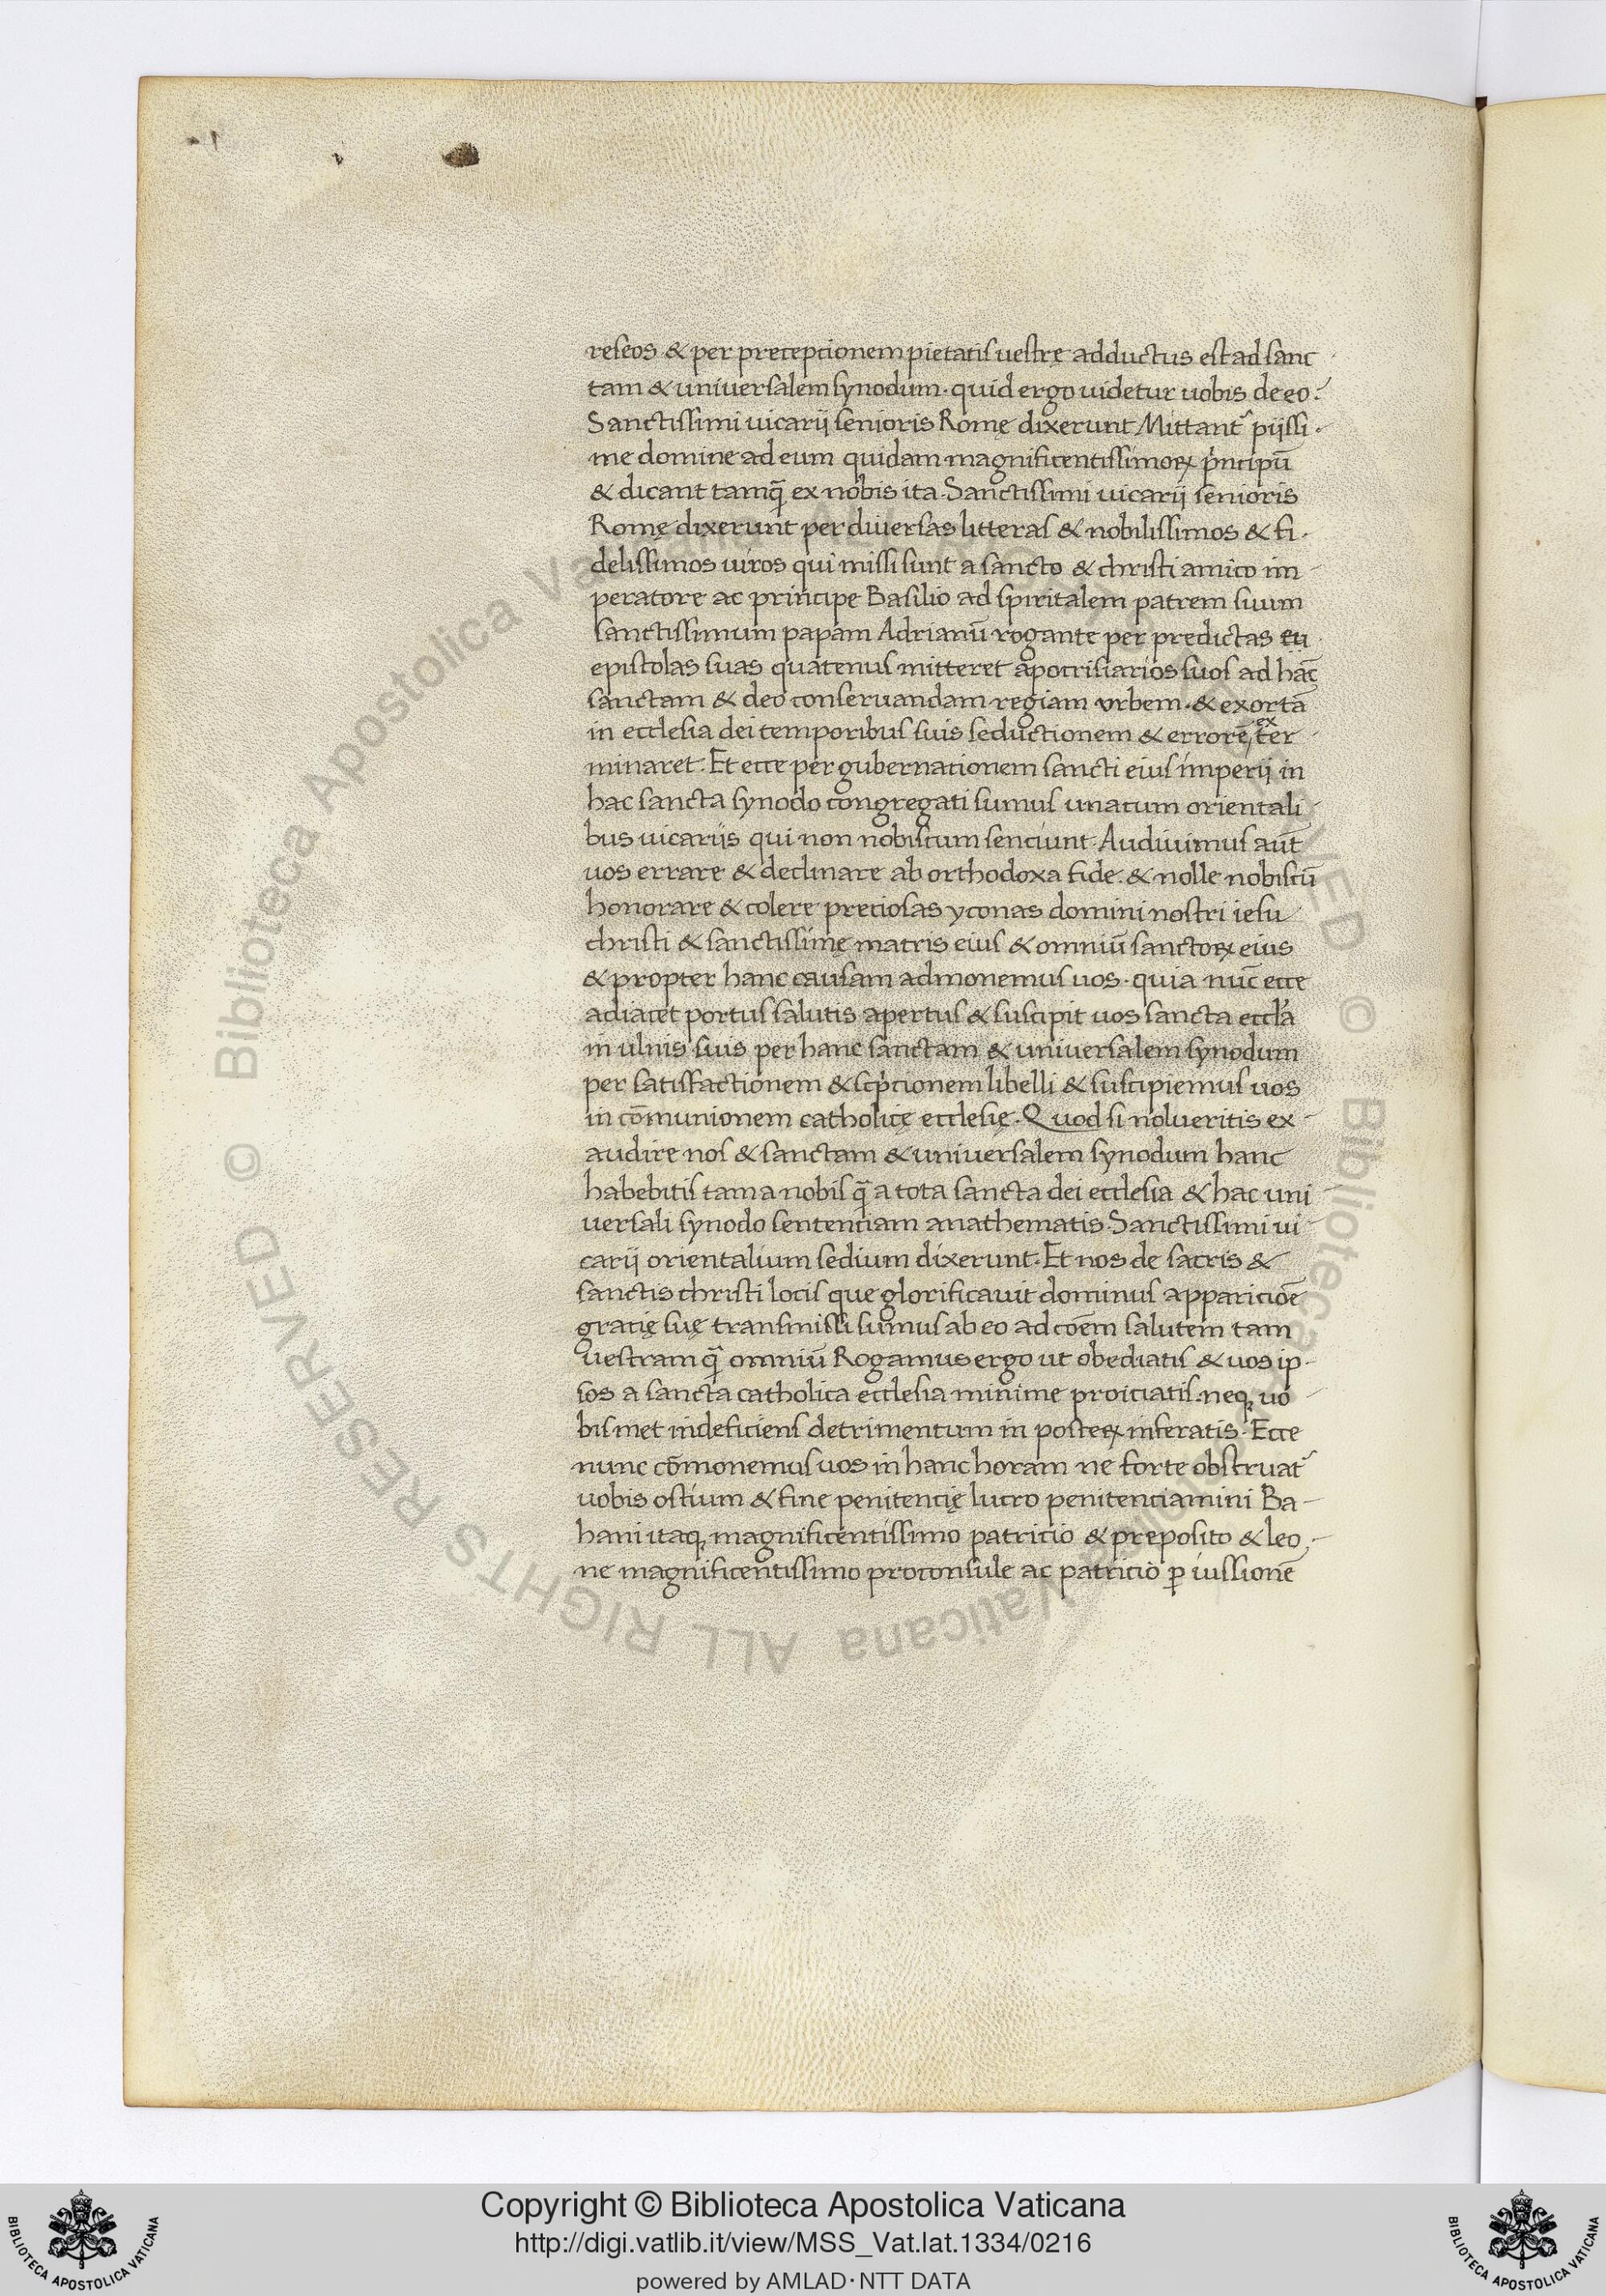 reseos & per preceptionem pietatis uestrę adductus est ad sanc
tam & uniuersalem synodum · quid ergo uidetur uobis de eo ?
Sanctissimi uicarij senioris Romę dixerunt Mittant᷑ pijssi ·
me domine ad eum quidam magnificentissimoꝝ p̓ncipū
& dicant tamq̄ ex nobis ita · Sanctissimi uicarij senioris
Romę dixerunt per diuersas litteras & nobilissimos & fi ·
delissimos uiros qui missi sunt a sancto & christi amico im
peratore ac principe Basilio ad spiritalem patrem suum
sanctissimum papam Adrianū rogante per predictas eu
epistolas suas quatenus mitteret apocrisiarios suos ad hāc
sanctam & deo conseruandam regiam vrbem · & exortā
in ecclesia dei temporibus suis seductionem & errorē exter
minaret · Et ecce per gubernationem sancti eius imperij in
hac sancta synodo congregati sumus unacum orientali
bus uicarijs qui non nobiscum senciunt · Audiuimus aūt
uos errare & declinare ab orthodoxa fide · & nolle nobiscū
honorare & colere preciosas yconas domini nostri iesu
christi & sanctissimę matris eius & omniū sanctoꝝ eius
& propter hanc causam admonemus uos · quia nūc ecce
adiacet portus salutis apertus & suscipit uos sancta eccl̓a
in ulnis suis per hanc sanctam & uniuersalem synodum
per satisfactionem & scp̓cionem libelli & suscipiemus uos
in cōmunionem catholicę ecclesię · Quod si nolueritis ex
audire nos & sanctam & uniuersalem synodum hanc
habebitis tam a nobis q̄ a tota sancta dei ecclesia & hac uni
uersali synodo sentenciam anathematis · Sanctissimi ui
carij orientalium sedium dixerunt · Et nos de sacris &
sanctis christi locis que glorificauit dominus appariciōe
gracię suę transmissi sumus ab eo ad cōem salutem tam
uestram q̄ omniū Rogamus ergo ut obediatis & uos ip ·
sos a sancta catholica ecclesia minime proiciatis · neqꝫ uo
bismet indeficiens detrimentum in posteꝝ inferatis · Ecce
nunc cōmonemus uos in hanc horam ne forte obstruat᷑
uobis ostium & sine penitencię lucro penitenciamini Ba
hani itaqꝫ magnificentissimo patricio & preposito & leo
ne magnificentissimo proconsule ac patricio ꝑ iussionē
© Biblioteca Apostolica Vaticana ALL RIGHTS RESERVED © Biblioteca Apostolica Vaticana ALL RIGHTS RESERVED
Copyright © Biblioteca Apostolica Vaticana
http://digi.vatlib.it/view/MSS_Vat.lat.1334/0216
powered by AMLAD · NTT DATA
BIBLIOTECA APOSTOLICA VATICANA
BIBLIOTECA APOSTOLICA VATICANA